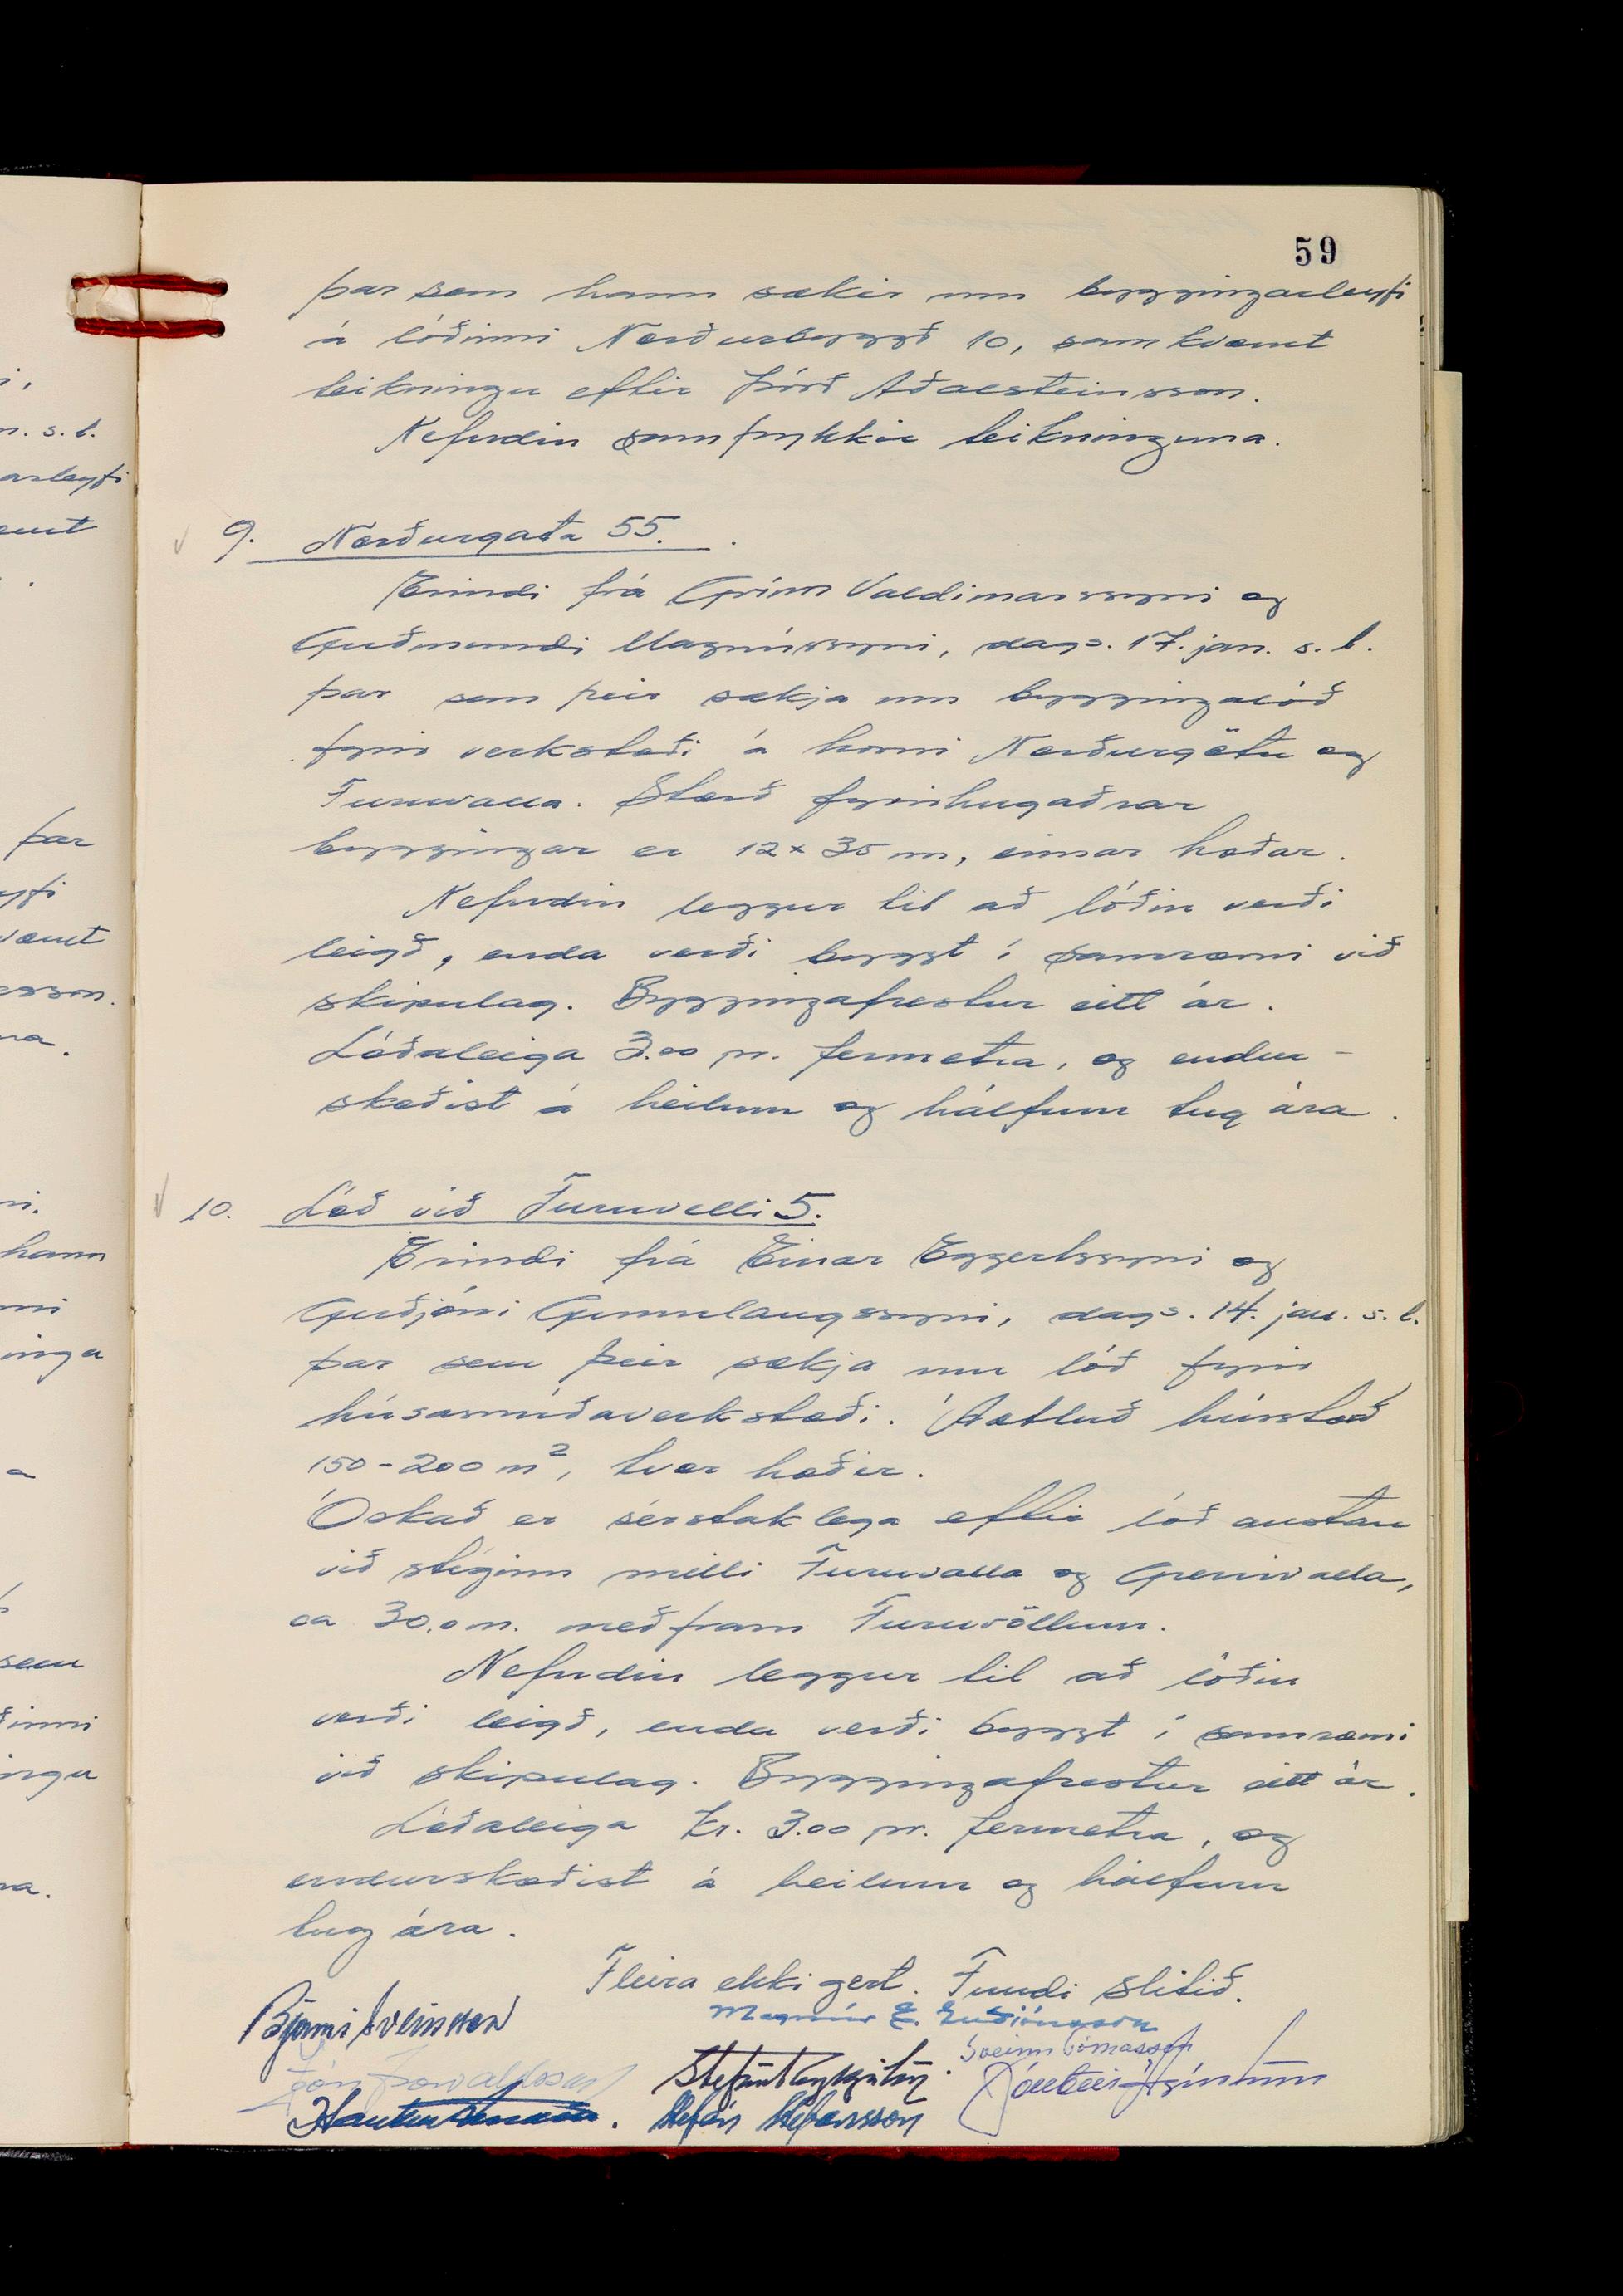 59
þar sem hann sækir um byggingarleyfi
á lóðinni Norðurbyggð 10, samkvæmt
teikningu eftir Þórð Aðalsteinsson.
Nefndin samþykkir teikninguna.
9. Norðurgata 55.
Erindi frá Grími Valdimarssyni og
Guðmundi Magnússyni, dags. 17. jan. s.l.
þar sem þeir sækja um byggingalóð
fyrir verkstæði á horni Norðurgötu og
Furuvalla. Stærð fyrirhugaðrar
byggingar er 12 x 35 m, einnar hæðar.
Nefndin leggur til að lóðin verði
leigð, enda verði byggt í samræmi við
skipulag. Byggingafrestur eitt ár.
Lóðaleiga 3.00 pr. fermetra, og endur-
skoðist á heilum og hálfum tug ára.
10. Lóð við Furuvelli 5.
Erindi frá Einar Eggertssyni og
Guðjóni Gunnlaugssyni, dags. 14. jan. s.l.
þar sem þeir sækja um lóð fyrir
húsasmíðaverkstæði. Áætluð hússtærð
150-200 m², tvær hæðir.
Óskað er sérstaklega eftir lóð austan
við stíginn milli Furuvalla og Grenivalla,
ca 30,0 m. meðfram Furuvöllum.
Nefndin leggur til að lóðin
verði leigð, enda verði byggt í samræmi
við skipulag. Byggingafrestur eitt ár.
Lóðaleiga kr. 3.00 pr. fermetra, og
endurskoðist á heilum og hálfum
tug ára.
Fleira ekki gert. Fundi slitið.
Bjarni Sveinsson
Magnús E. Guðjónsson
Sveinn Tómasson
Jón Þorvaldsson
Stefán Reykjalín.
Haukur
Stefán Stefánsson
n. s.l.
arleyfi
þar
hann
sem